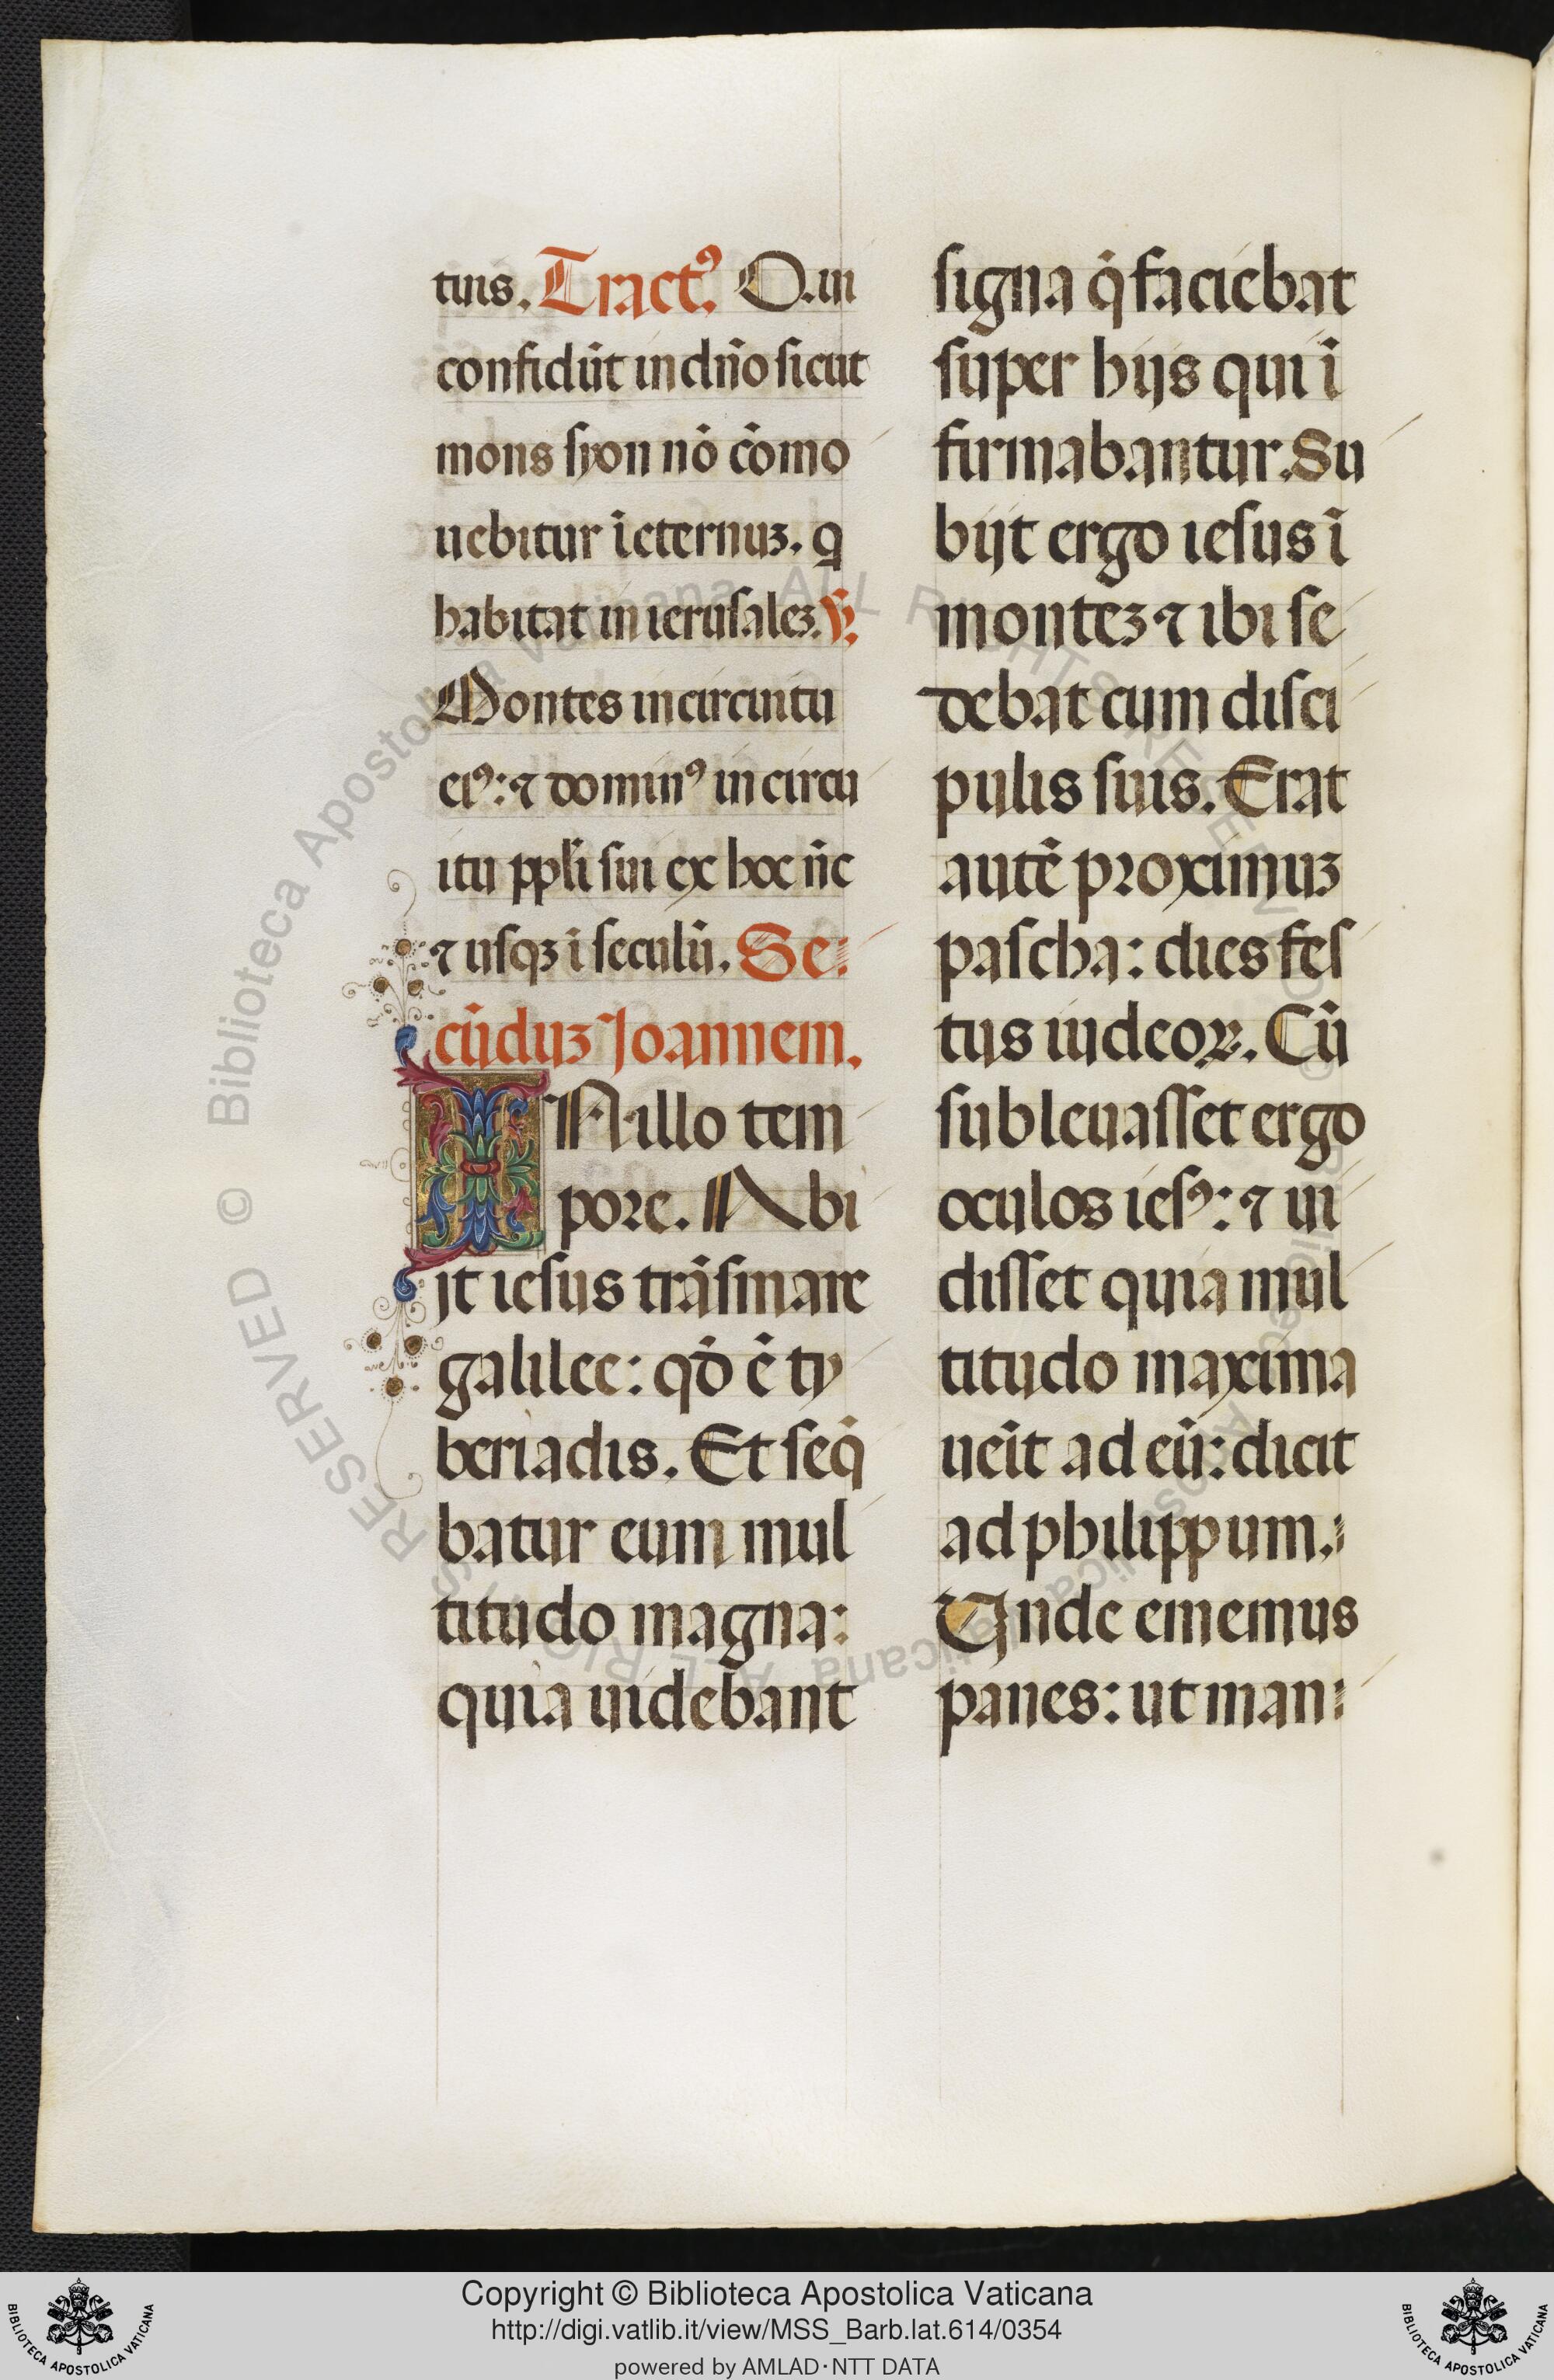 tuis. Tractꝰ. Q͛ui
confidūt in dn̄o sicut
mons syon nō cōmo
uebitur ī eternuꝫ. q
habitat in ierusaleꝫ. ℣.
Montes in circuitu
eiꝰ: ⁊ dominꝰ in circu
itu ppl̄i sui ex hoc nc̄
⁊ usqꝫ ī seculū. Se:
cūduꝫ Joannem.
IN illo tem
pore. Abi
jt iesus trāsmare
galilee: qd̄ ē ty
beriadis. Et seq̄
batur eum mul
titudo magna:
quia uidebant
signa q̄ faciebat
super hijs qui ī
firmabantur. Su
bijt ergo iesus ī
monteꝫ ⁊ ibi se
debat cum disci
pulis suis. Erat
autē proximuꝫ
pascha: dies fes
tus iudeoꝝ. Cū
subleuasset ergo
oculos iesꝰ: ⁊ ui
disset quia mul
titudo maxima
ueīt ad eū: dicit
ad philippum.:
Unde ememus
panes: ut man:
© Biblioteca Apostolica Vaticana ALL RIGHTS RESERVED
Copyright © Biblioteca Apostolica Vaticana
http://digi.vatlib.it/view/MSS_Barb.lat.614/0354
powered by AMLAD·NTT DATA
BIBLIOTECA APOSTOLICA VATICANA
BIBLIOTECA APOSTOLICA VATICANA